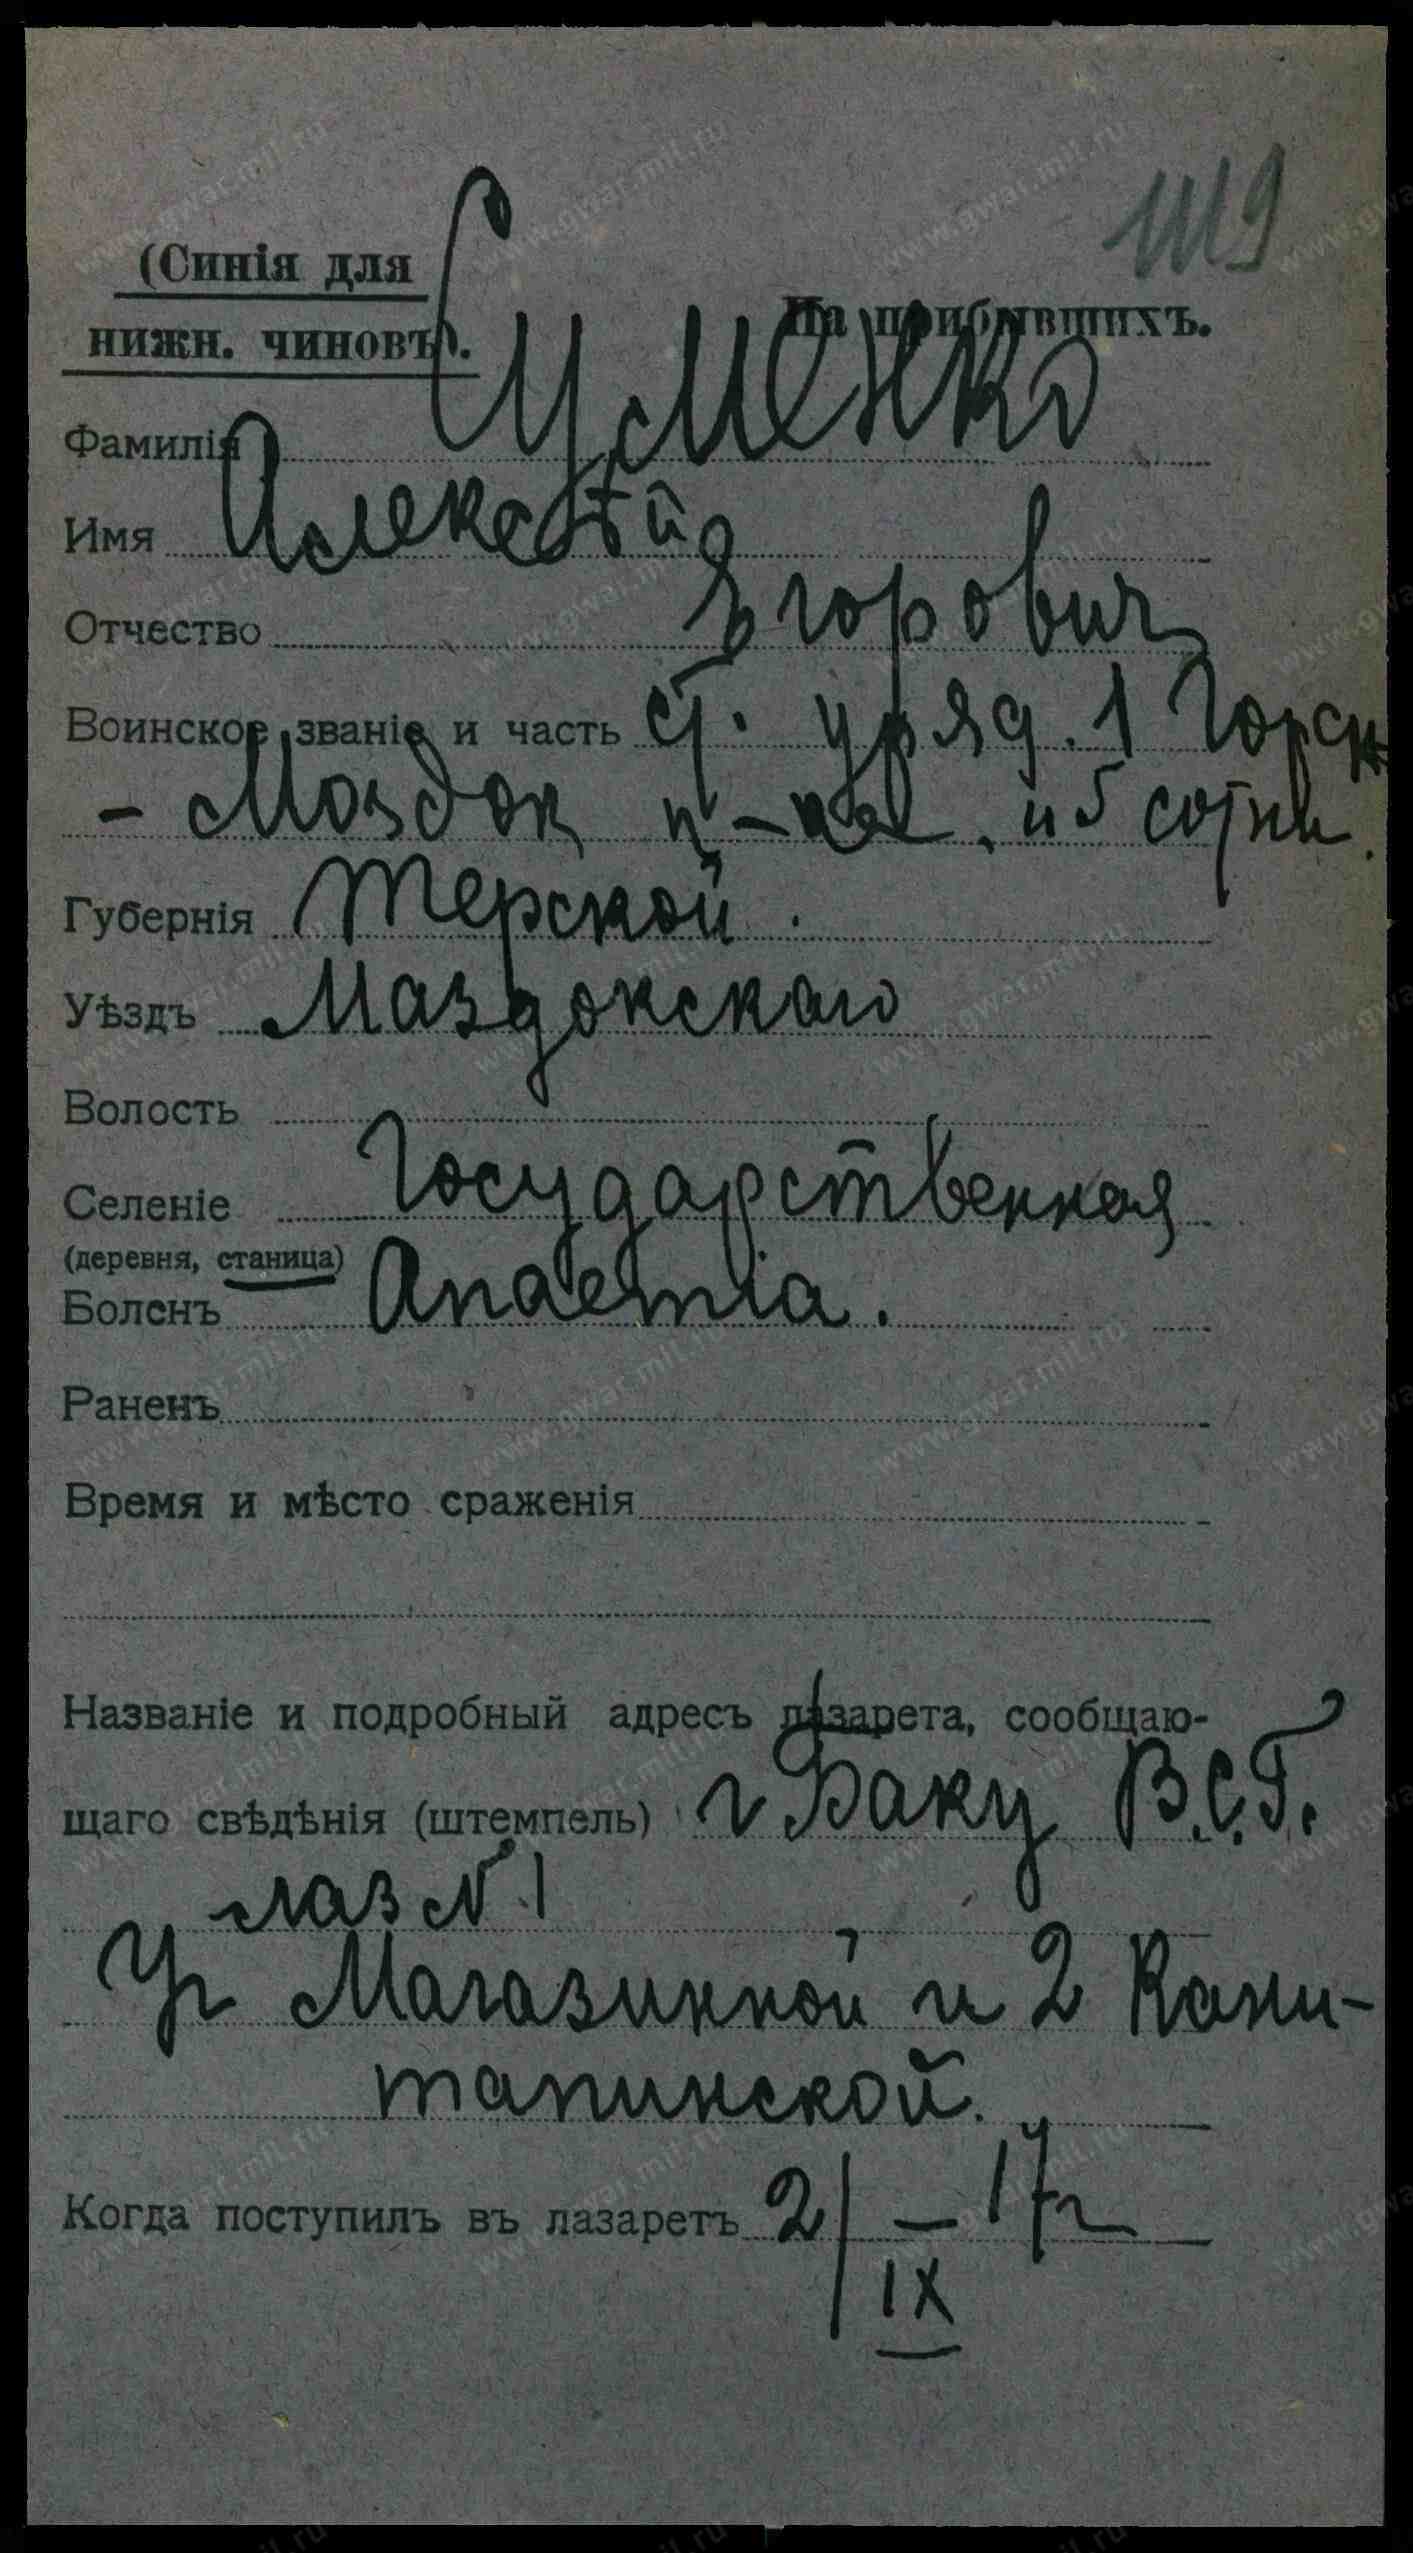 1119
(Синія для
нижн. чиновъ).
На прибывшихъ.
Фамилія Суменко
Имя Алексѣй
Отчество Егорович
Воинское званіе и часть ст. уряд. 1 Горск
- Моздок п- . и 5 сотни.
Губернія Терской.
Уѣздъ Маздокскаго
Волость
Селеніе Государственная
(деревня, станица)
Боленъ Anaemia.
Раненъ
Время и мѣсто сраженія
Названіе и подробный адресъ лазарета, сообщаю-
щаго свѣдѣнія (штемпель) г Баку В.С.Г.
лаз № 1
Уг Магазинной и 2 Кани-
тапинской.
Когда поступилъ въ лазаретъ 2/IX - 17 г